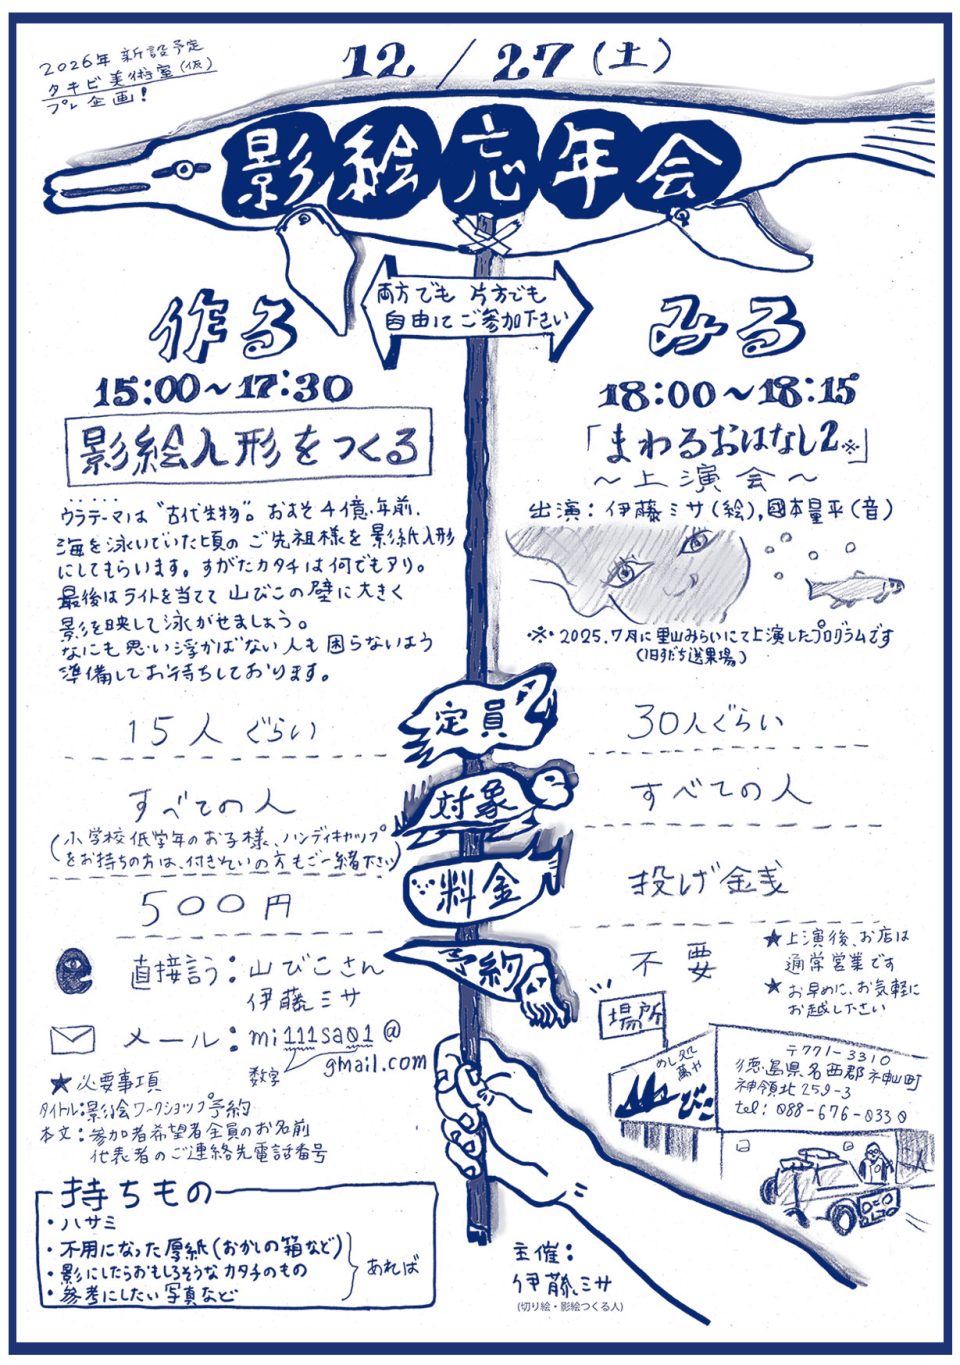 2026年 新設予定
タキビ美術室(仮)
プレ企画!
12/27(土)
影絵忘年会
両方でも 片方でも
自由にご参加下さい
作る
15:00〜17:30
影絵人形をつくる
ウラテーマは"古代生物"。おおそ4億年前、
海を泳いでいた頃のご先祖様を影絵人形
にしてもらいます。すがたカタチは何でもアリ。
最後はライトを当てて山びこの壁に大きく
影を映して泳がせましょう。
なにも思い浮かばない人も困らないよう
準備してお待ちしております。
みる
18:00〜18:15
「まわるおはなし2※」
〜上演会〜
出演:伊藤ミサ(絵),國本量平(音)
※2025.7月に里山みらいにて上演したプログラムです
(旧すだち選果場)
定員
15人ぐらい
30人ぐらい
対象
すべての人
(小学校低学年のお子様、ハンディキャップ
をお持ちの方は、付きそいの方もご一緒下さい)
すべての人
料金
500円
投げ銭
予約
直接言う:山びこさん
伊藤ミサ
メール:mi111sa01@
gmail.com
数字
★必要事項
タイトル:影絵ワークショップ予約
本文:参加者希望者全員のお名前
代表者のご連絡先電話番号
不要
★上演後、お店は
通常営業です
★お早めに、お気軽に
お越しください
場所
めし処
萬や
山びこ
〒771-3310
徳島県名西郡神山町
神領北259-3
tel:088-676-0330
持ちもの
・ハサミ
・不用になった厚紙(おかしの箱など)
・影にしたらおもしろそうなカタチのもの
・参考にしたい写真など
あれば
主催:
伊藤ミサ
(切り絵・影絵つくる人)